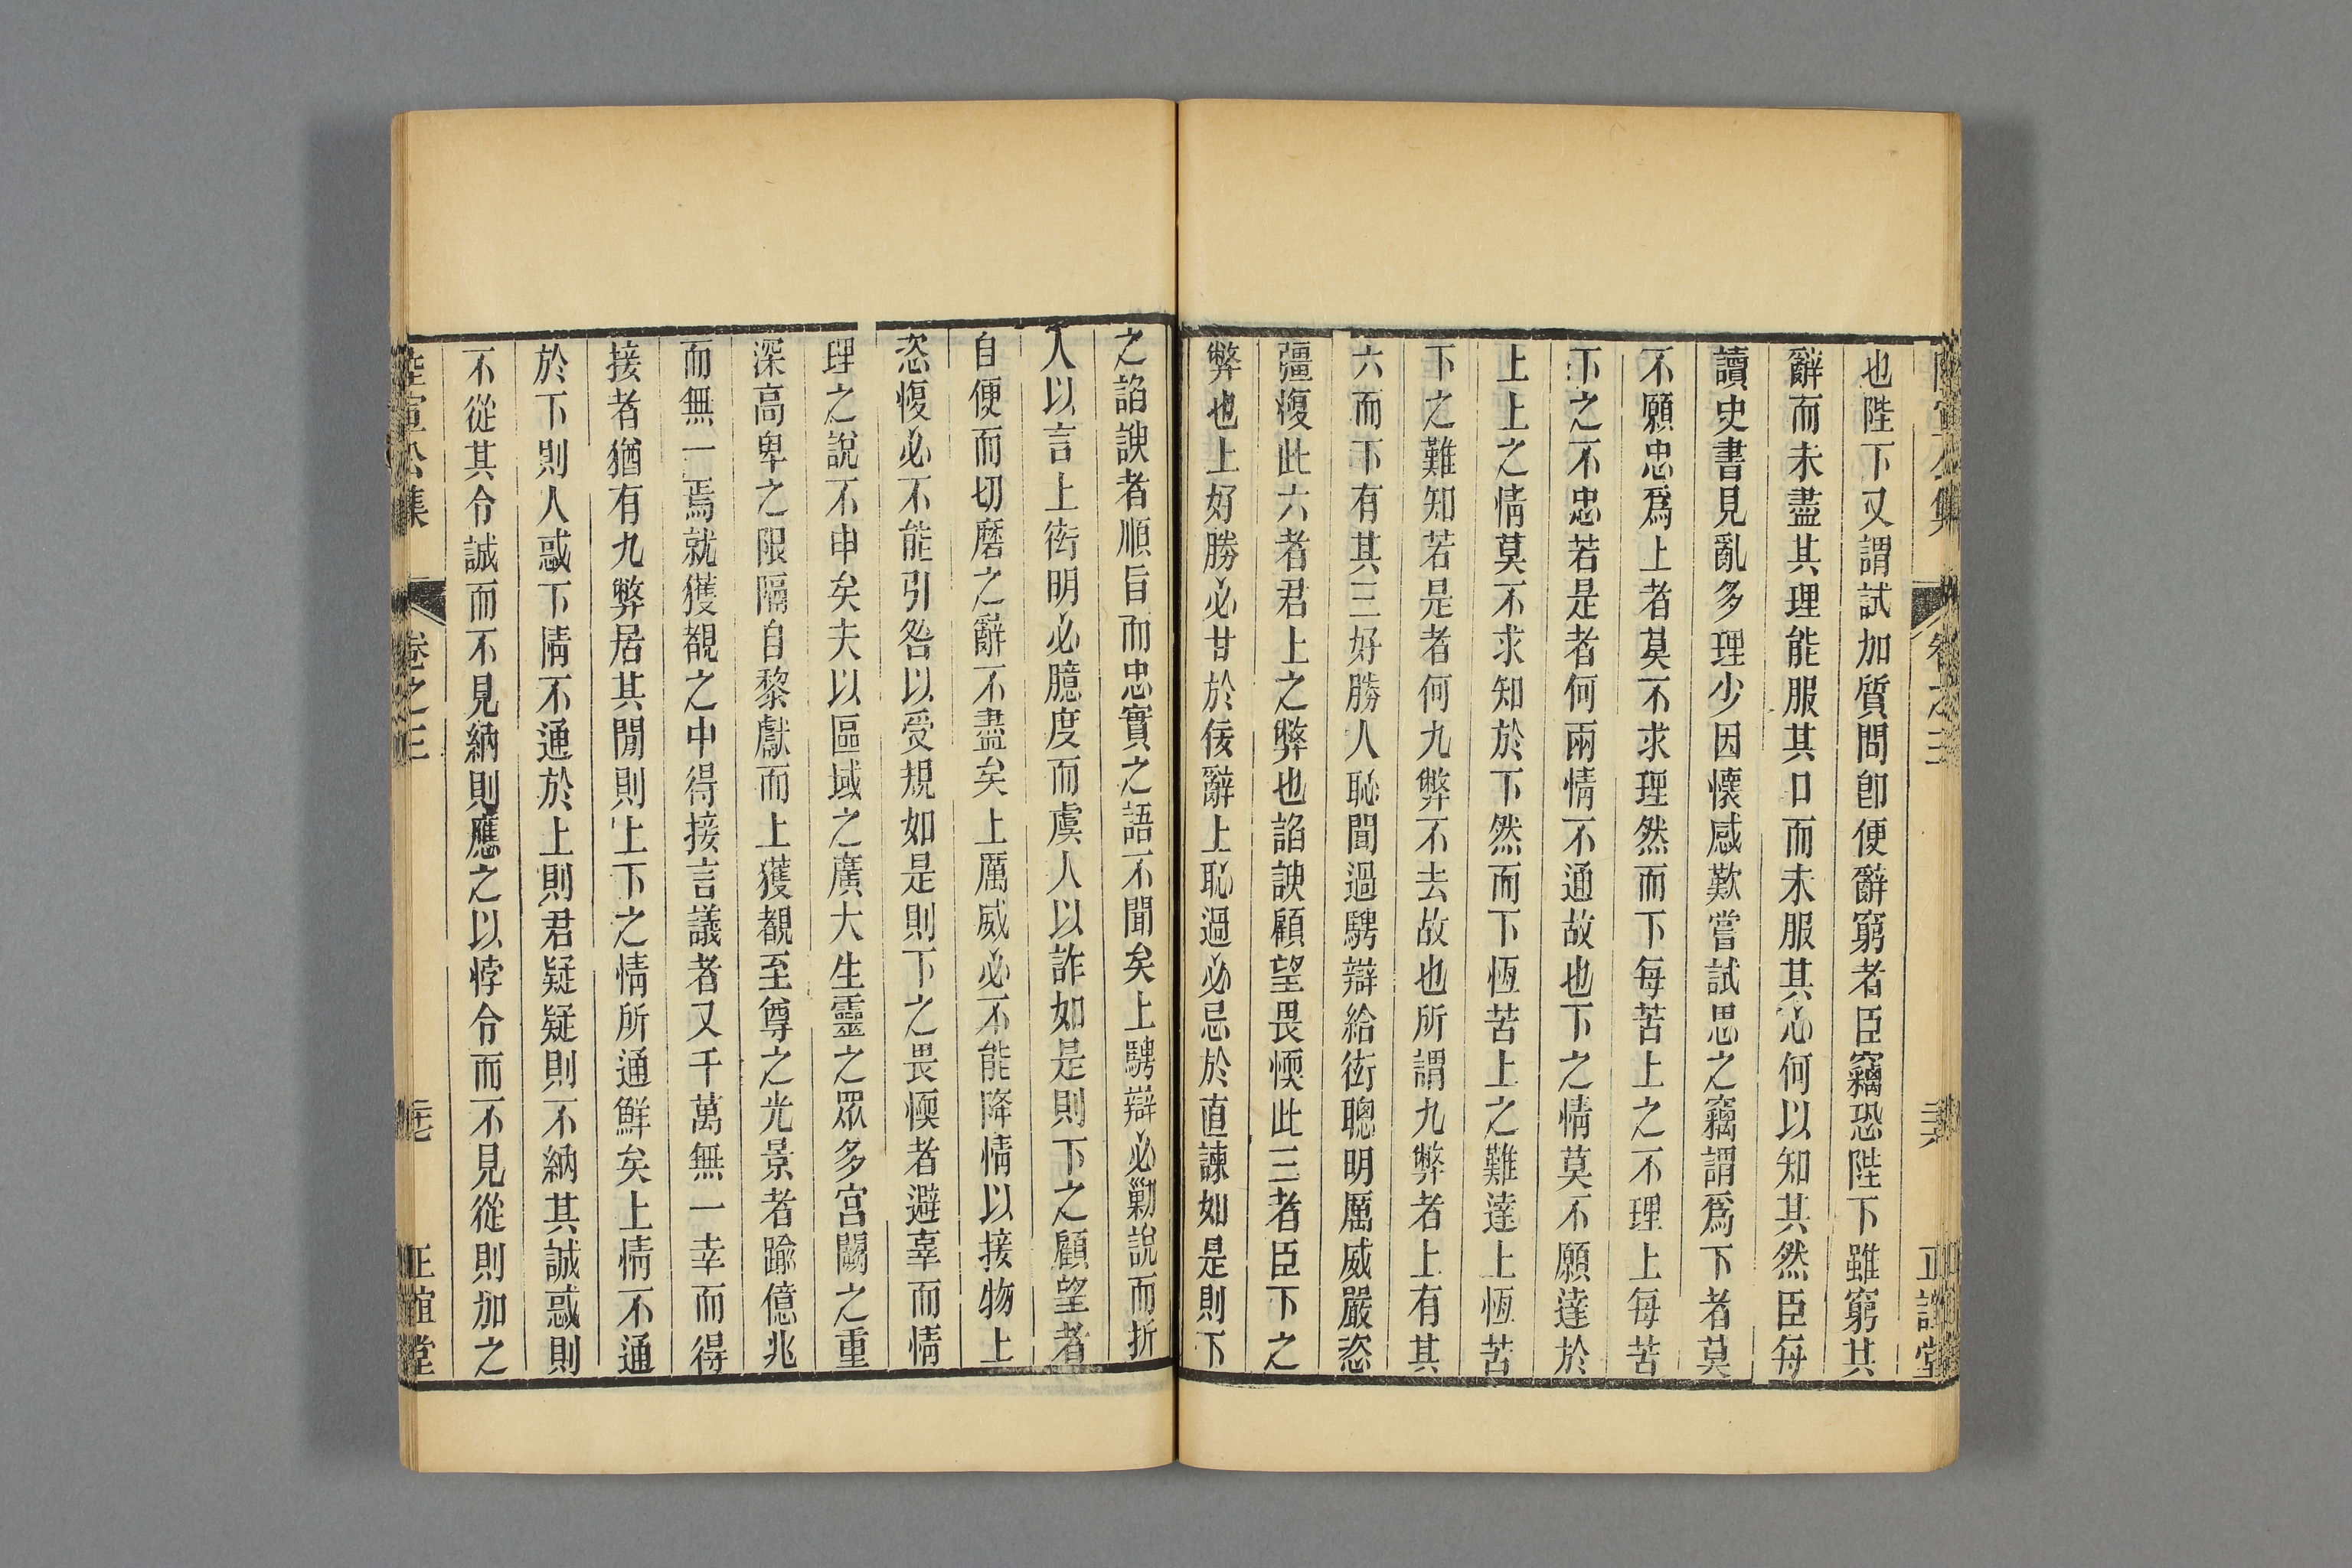 陸宣公集 卷之三 二十六 正誼堂
也陛下又謂試加質問卽便辭窮者臣竊恐陛下雖窮其
辭而未盡其理能服其口而未服其心何以知其然臣每
讀史書見亂多理少因懷感歎嘗試思之竊謂爲下者莫
不願忠爲上者莫不求理然而下每苦上之不理上每苦
下之不忠若是者何兩情不通故也下之情莫不願達於
上上之情莫不求知於下然而下恆苦上之難達上恆苦
下之難知若是者何九弊不去故也所謂九弊者上有其
六而下有其三好勝人恥聞過騁辯給衒聰明厲威嚴恣
彊愎此六者君上之弊也諂諛顧望畏愞此三者臣下之
弊也上好勝必甘於佞辭上恥過必忌於直諫如是則下
之諂諛者順旨而忠實之語不聞矣上騁辯必勦說而折
人以言上衒明必臆度而虞人以詐如是則下之顧望者
自便而切磨之辭不盡矣上厲威必不能降情以接物上
恣愎必不能引咎以受規如是則下之畏愞者避辜而情
理之說不申矣夫以區域之廣大生靈之眾多宮闕之重
深高卑之限隔自黎獻而上獲覩至尊之光景者踰億兆
而無一焉就獲覩之中得接言議者又千萬無一幸而得
接者猶有九弊居其閒則上下之情所通鮮矣上情不通
於下則人惑下情不通於上則君疑疑則不納其誠惑則
不從其令誠而不見納則應之以悖令而不見從則加之
陸宣公集 卷之三 二十七 正誼堂